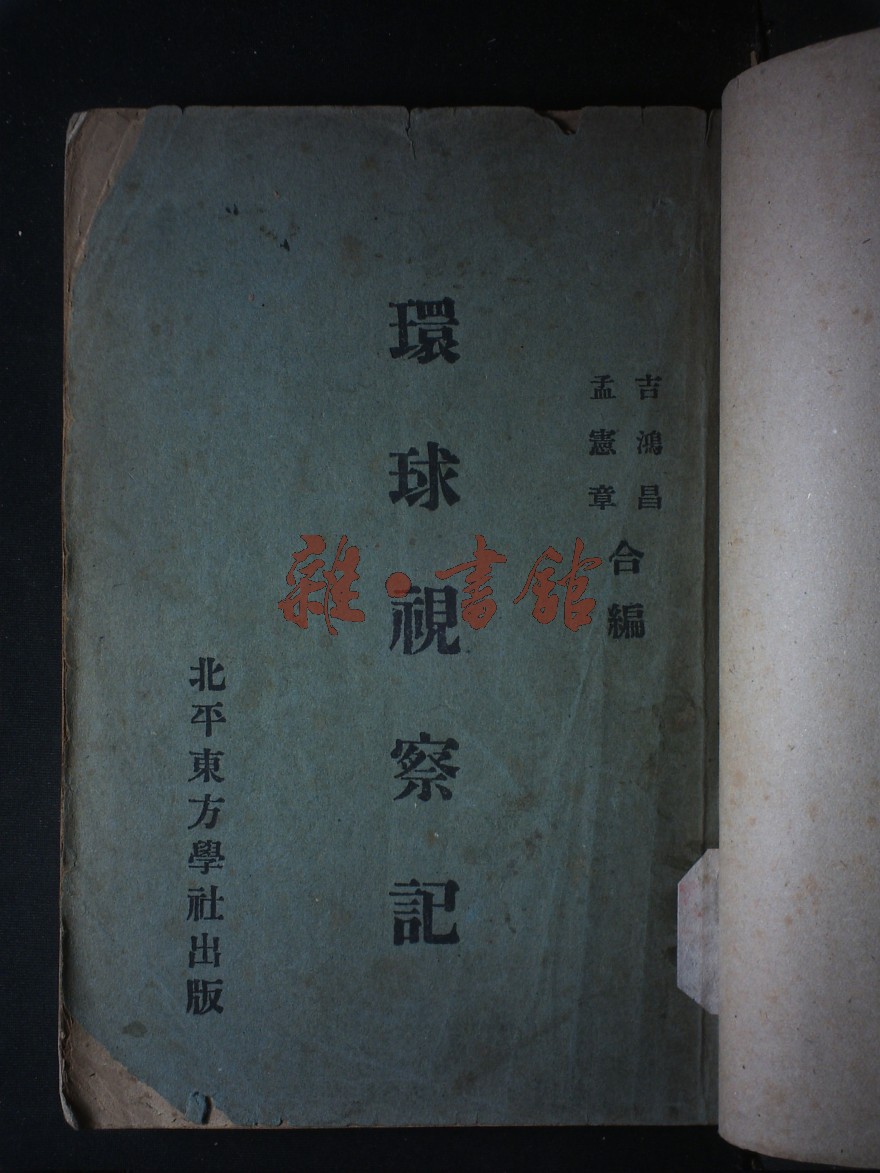 吉鴻昌
孟憲章
合編
環球視察記
北平東方學社出版
雜·書館